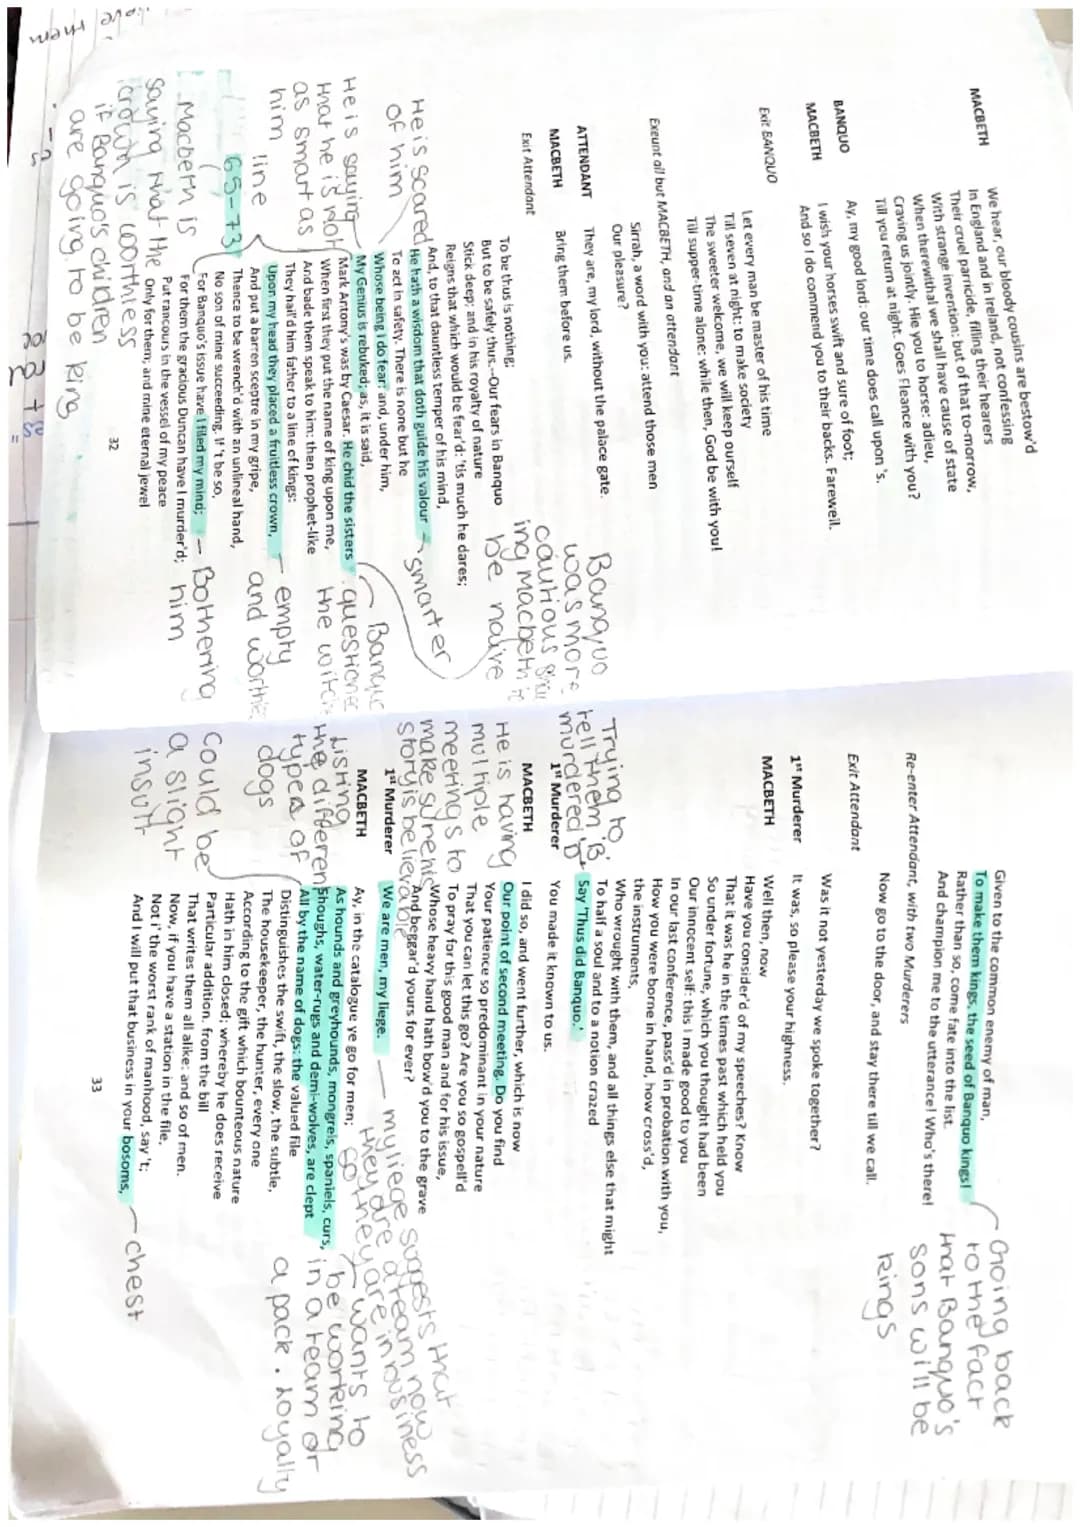 MACBETH
We hear, our bloody cousins are bestow'd
In England and in Ireland, not confessing
Their cruel parricide, filling their hearers
With strange invention: but of that to-morrow,
When therewithal we shall have cause of state
Craving us jointly. Hie you to horse: adieu,
Till you return at night. Goes Fleance with you?
BANQUO
Ay, my good lord: our time does call upon 's.
MACBETH
I wish your horses swift and sure of foot;
And so I do commend you to their backs. Farewell.
Exit BANQUO
Let every man be master of his time
Till seven at night: to make society
The sweeter welcome, we will keep ourself
Till supper-time alone: while then, God be with you!
Exeunt all but MACBETH, and an attendant
Sirrah, a word with you: attend those men
Our pleasure?
ATTENDANT
They are, my lord, without the palace gate.
MACBETH
Bring them before us.
Exit Attendant
To be thus is nothing;
But to be safely thus.--Our fears in Banquo
Stick deep; and in his royalty of nature
Reigns that which would be fear'd: 'tis much he dares;
And, to that dauntless temper of his mind,
He hath a wisdom that doth guide his valour
To act in safety. There is none but he
Whose being I do fear: and, under him,
My Genius is rebuked; as, it is said,
Mark Antony's was by Caesar. He chid the sisters
When first they put the name of king upon me,
And bade them speak to him: then prophet-like
They hail'd him father to a line of kings:
Upon my head they placed a fruitless crown,
And put a barren sceptre in my gripe,
Thence to be wrench'd with an unlineal hand,
No son of mine succeeding. If 't be so,
For Banquo's issue have I filed my mind;
For them the gracious Duncan have I murder'd;
Put rancours in the vessel of my peace
Only for them; and mine eternal jewel
32
Banquo
was more
cautious
ing Macbeth
be naive
smarter
He is scared
of him
He is saying
that he is not
as smart as
him
line
65-73
Macbeth is
saying that the
crown is worthless
if Banquo's children
are going to be king
questioned
empty
and
Bothering
him
them
Given to the common enemy of man,
To make them kings, the seed of Banquo kings!
Rather than so, come fate into the list.
And champion me to the utterance! Who's there!
Re-enter Attendant, with two Murderers
Now go to the door, and stay there till we call.
Exit Attendant
Was it not yesterday we spoke together?
1st Murderer
It was, so please your highness.
MACBETH
Well then, now
Have you consider'd of my speeches? Know
That it was he in the times past which held you
So under fortune, which you thought had been
Our innocent self: this I made good to you
In our last conference, pass'd in probation with you,
How you were borne in hand, how cross'd,
the instruments,
Who wrought with them, and all things else that might
To half a soul and to a notion crazed
Say 'Thus did Banquo.'
1st Murderer
You made it known to us.
MACBETH
I did so, and went further, which is now
Our point of second meeting. Do you find
Your patience so predominant in your nature
That you can let this go? Are you so gospell'd
To pray for this good man and for his issue,
Whose heavy hand hath bow'd you to the grave
And beggar'd yours for ever?
1st Murderer
We are men, my liege.
MACBETH
Ay, in the catalogue ye go for men;
As hounds and greyhounds, mongrels, spaniels, curs,
Shoughs, water-rugs and demi-wolves, are clept
All by the name of dogs: the valued file
Distinguishes the swift, the slow, the subtle,
The housekeeper, the hunter, every one
According to the gift which bounteous nature
Hath in him closed; whereby he does receive
Particular addition, from the bill
That writes them all alike: and so of men.
Now, if you have a station in the file,
Not i' the worst rank of manhood, say 't;
And I will put that business in your bosoms,
33
Going back
to the fact
that Banquo's
sons will be
kings
Trying to
tell them 'B'
murdered 'D'
He is having
multiple
meetings to
make sure his
story is believable
my liege suggests that
they are a team now
so they are in business
Listing
the different
types of
dogs
wants to
be working
in a team or
a pack. Loyalty
Could be
a slight
insult
chest